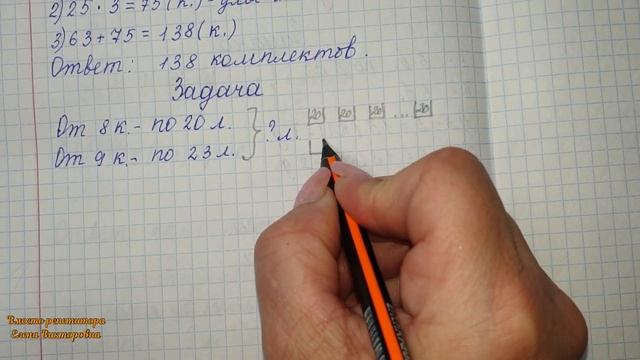 2) 25 · 3 = 75 (к.) -
3) 63 + 75 = 138 (к.)
Ответ: 138 комплектов.
Задача
От 8 к. - по 20 л.
От 9 к. - по 23 л.
} ? л.
20 20 20 ... 20
Вместо репетитора
Елена Викторовна